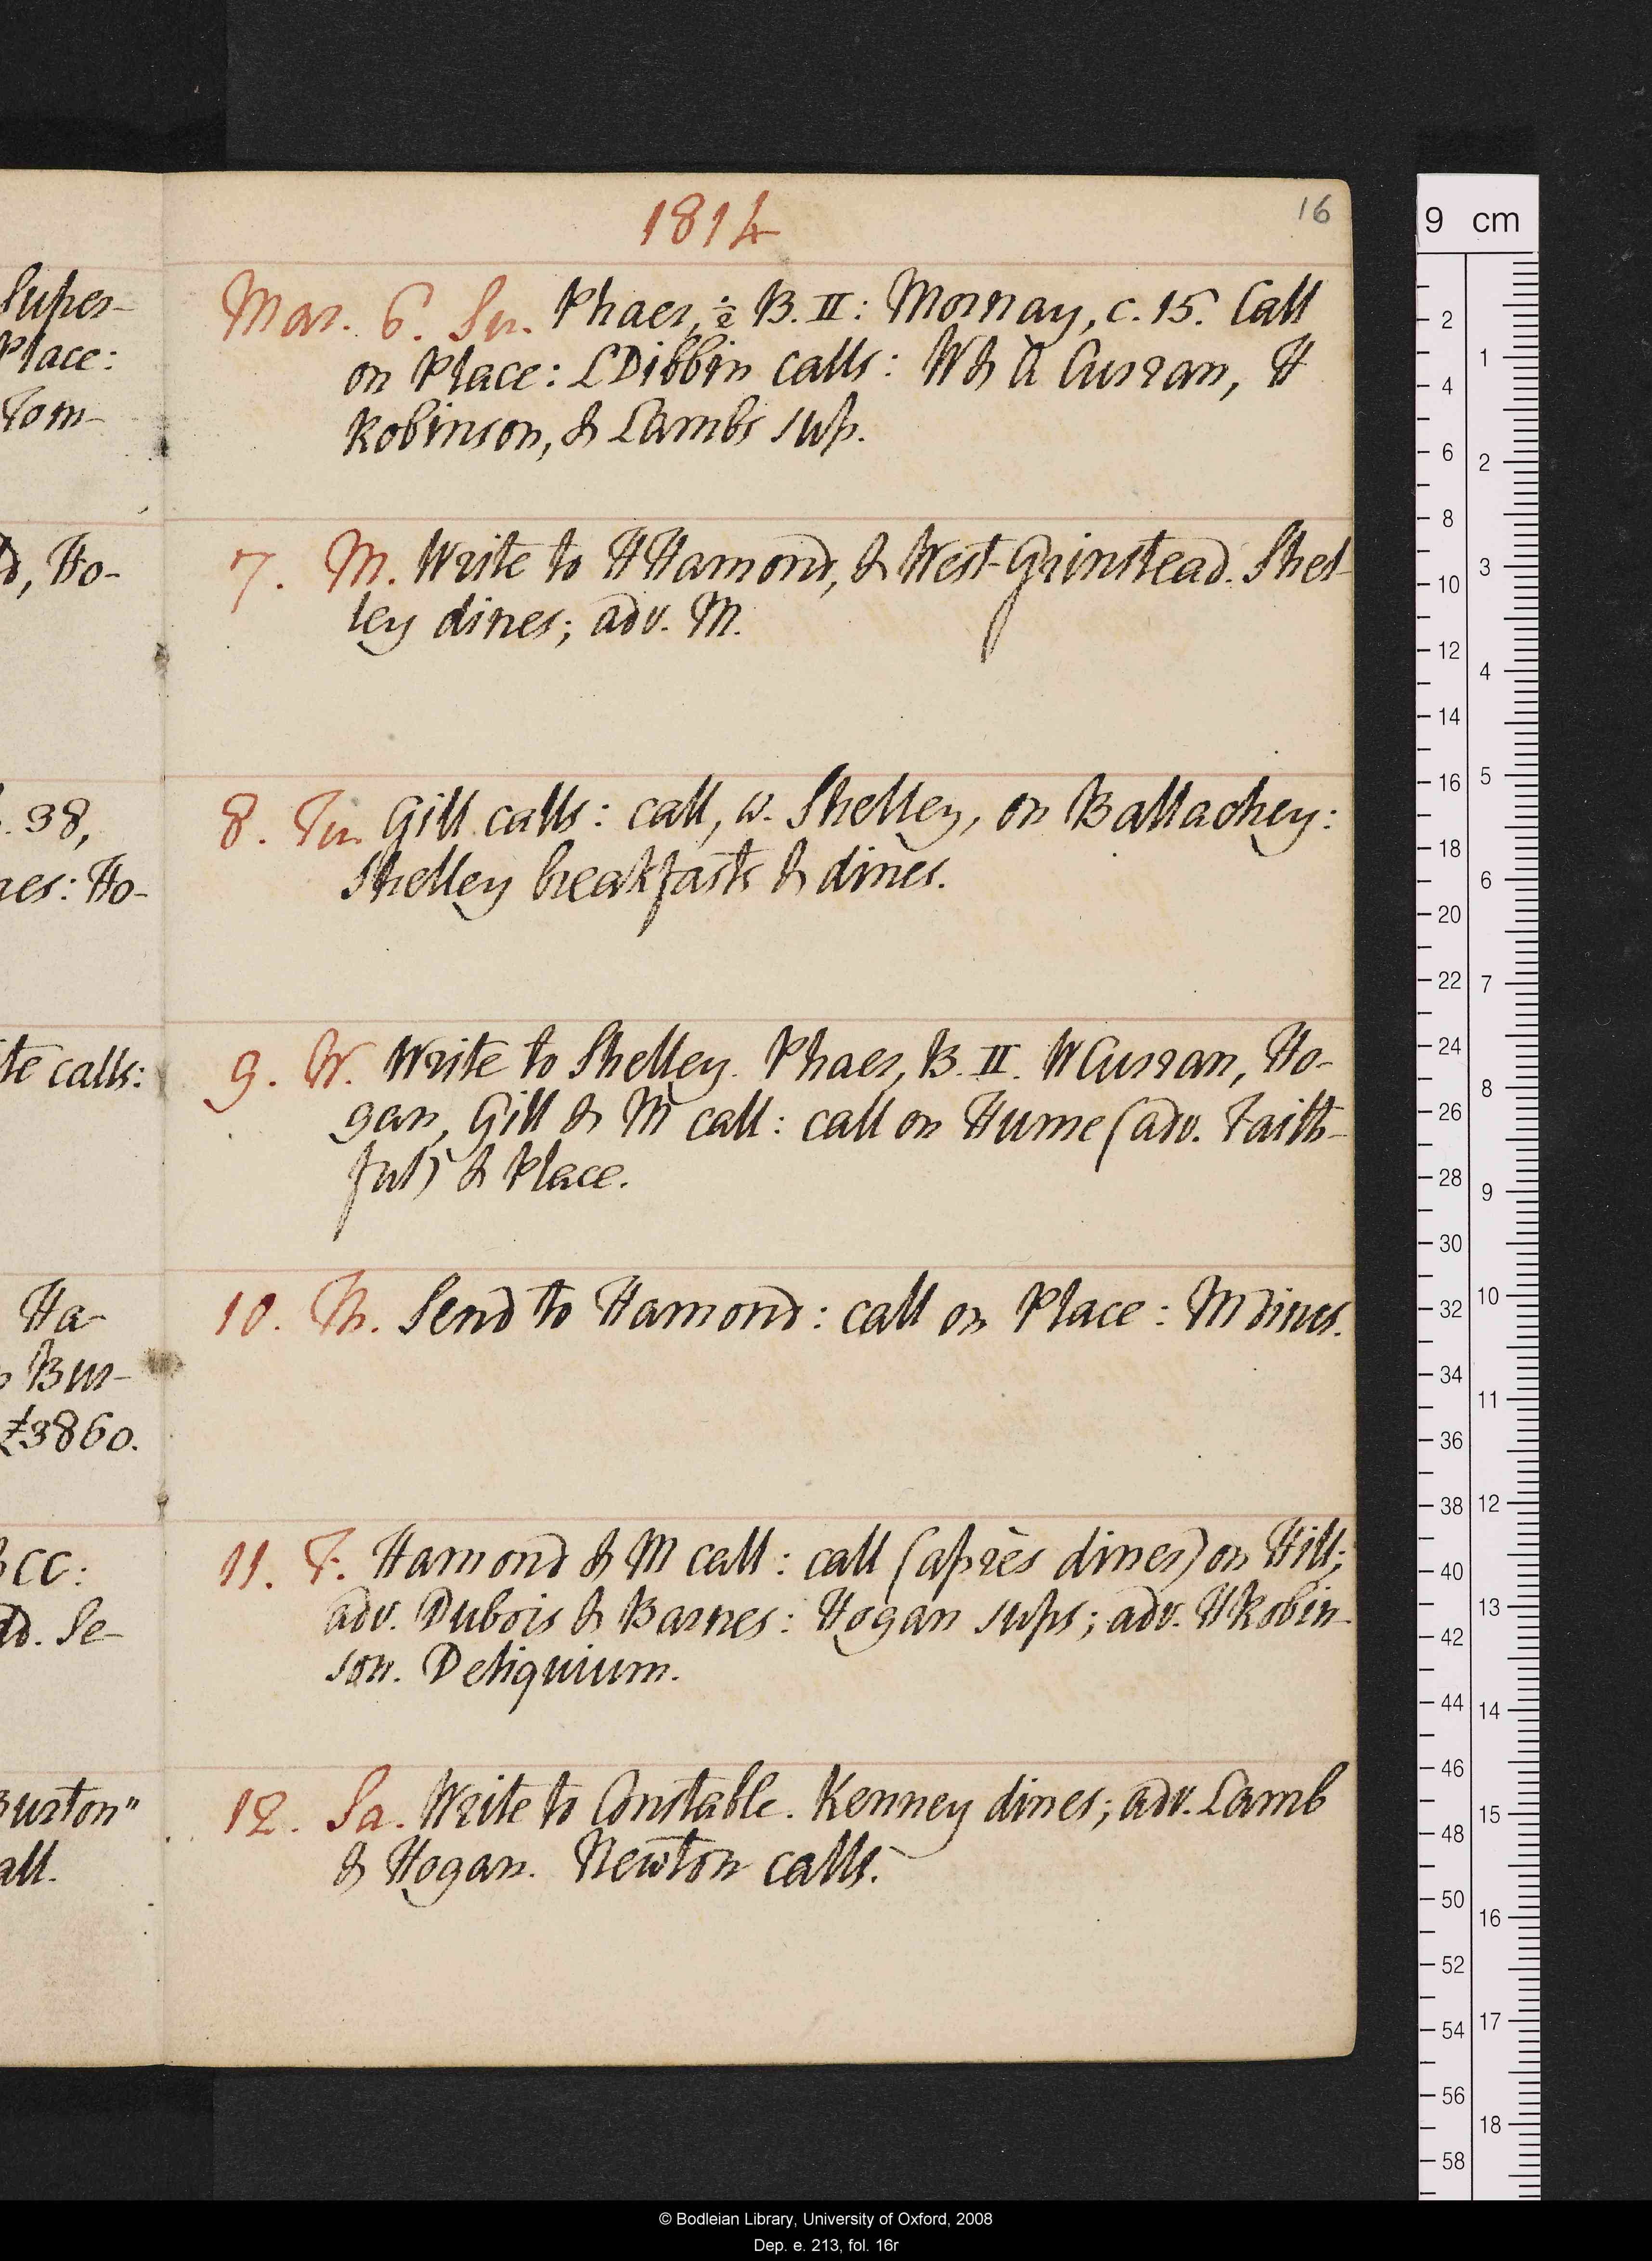 1814
16
Mar. 6. Su. Phaer, ½ B. II: Mornay, c. 15. Call
on Place: L Dibbin calls: W & A Curran, H
Robinson, & Lambs sup.
7. M. Write to H Hamond, & West-Grinstead. Shel-
ley dines; adv. M.
8. Tu. Gill calls: call, w. Shelley, on Ballachey:
Shelley breakfasts & dines.
9. W. Write to Shelley. Phaer, B. II. W Curran, Ho-
gan, Gill & M call: call on Hume (adv. Faith-
ful) & Place.
10. Th. Send to Hamond: call on Place: M dines.
11. F. Hamond & M call: call (après diner) on Hill;
adv. Dubois & Barnes: Hogan sups; adv. H Robin-
son. Deliquium.
12. Sa. Write to Constable. Kenney dines; adv. Lamb
& Hogan. Newton calls.
Super-
Place:
Tom-
d, Ho-
. 38,
nes: Ho-
te calls:
Ha-
Bur-
£3860.
CC:
d. Se-
Burton"
all.
9 cm
2
4
6
8
10
12
14
16
18
20
22
24
26
28
30
32
34
36
38
40
42
44
46
48
50
52
54
56
58
1
2
3
4
5
6
7
8
9
10
11
12
13
14
15
16
17
18
© Bodleian Library, University of Oxford, 2008
Dep. e. 213, fol. 16r